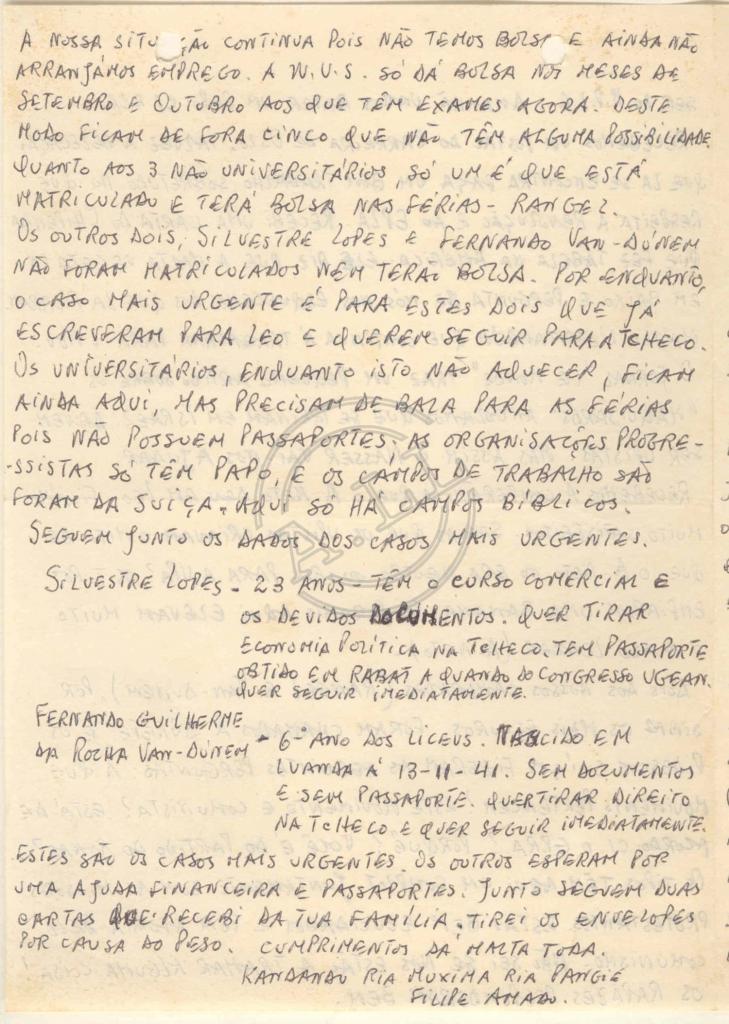 A NOSSA SITUAÇÃO CONTINUA POIS NÃO TEMOS BOLSA E AINDA NÃO
ARRANJÁMOS EMPREGO. A W.U.S. SÓ DÁ BOLSA NOS MESES DE
SETEMBRO E OUTUBRO AOS QUE TÊM EXAMES AGORA. DESTE
MODO FICAM DE FORA CINCO QUE NÃO TÊM ALGUMA POSSIBILIDADE.
QUANTO AOS 3 NÃO UNIVERSITÁRIOS, SÓ UM É QUE ESTÁ
MATRICULADO E TERÁ BOLSA NAS FÉRIAS - RANGEL.
OS OUTROS DOIS, SILVESTRE LOPES E FERNANDO VAN-DÚNEM
NÃO FORAM MATRICULADOS NEM TERÃO BOLSA. POR ENQUANTO,
O CASO MAIS URGENTE É PARA ESTES DOIS QUE JÁ
ESCREVERAM PARA LEO E QUEREM SEGUIR PARA A TCHECO.
OS UNIVERSITÁRIOS, ENQUANTO ISTO NÃO AQUECER, FICAM
AINDA AQUI, MAS PRECISAM DE BAZA PARA AS FÉRIAS
POIS NÃO POSSUEM PASSAPORTES; AS ORGANISAÇÕES PROGRE-
-SSISTAS SÓ TÊM PAPO, E OS CAMPOS DE TRABALHO SÃO
FORAM DA SUIÇA. AQUI SÓ HÁ CAMPOS BÍBLICOS.
SEGUEM JUNTO OS DADOS DOS CASOS MAIS URGENTES.
SILVESTRE LOPES - 23 ANOS - TÊM O CURSO COMERCIAL E
OS DEVIDOS DOCUMENTOS. QUER TIRAR
ECONOMIA POLÍTICA NA TCHECO. TEM PASSAPORTE
OBTIDO EM RABAT A QUANDO DO CONGRESSO UGEAN.
QUER SEGUIR IMEDIATAMENTE.
FERNANDO GUILHERME
DA ROCHA VAN-DÚNEM - 6º ANO DOS LICEUS. NASCIDO EM
LUANDA À 13-11-41. SEM DOCUMENTOS
E SEM PASSAPORTE. QUER TIRAR DIREITO
NA TCHECO E QUER SEGUIR IMEDIATAMENTE.
ESTES SÃO OS CASOS MAIS URGENTES. OS OUTROS ESPERAM POR
UMA AJUDA FINANCEIRA E PASSAPORTES. JUNTO SEGUEM DUAS
CARTAS QUE RECEBI DA TUA FAMÍLIA. TIREI OS ENVELOPES
POR CAUSA DO PESO. CUMPRIMENTOS DA MALTA TODA.
KANDANDU RIA MUXIMA RIA PANGIÉ
FILIPE AMADO.